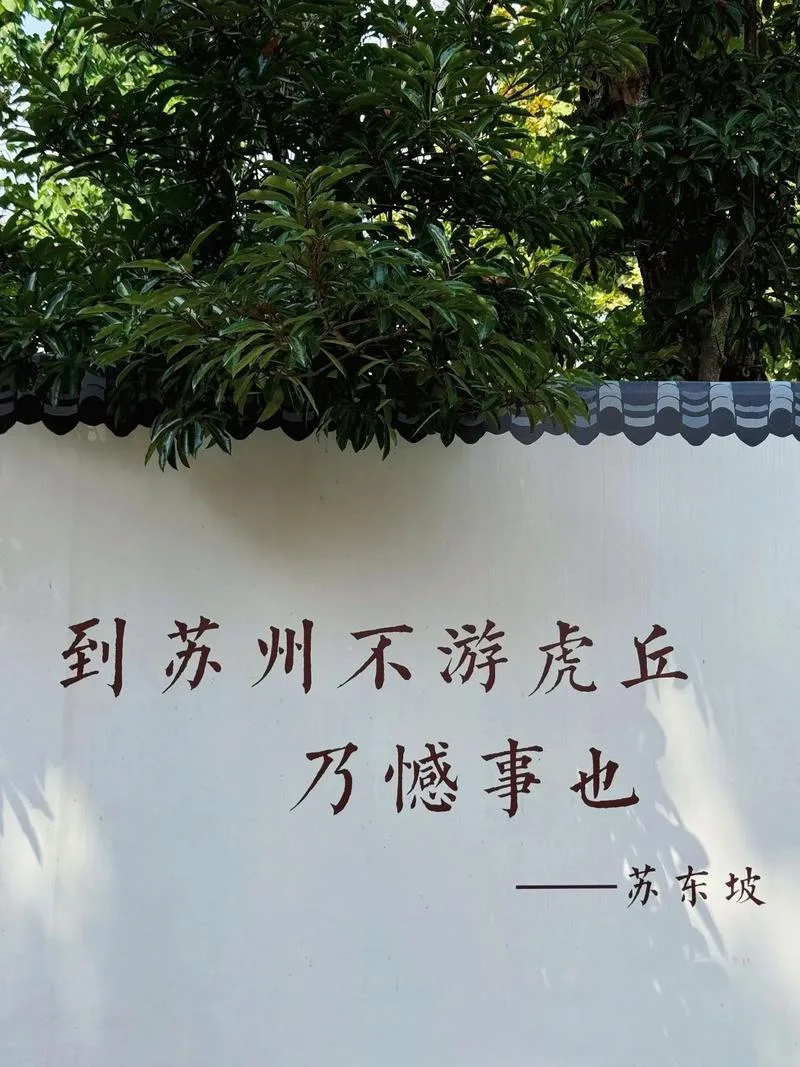 到苏州不游虎丘
乃憾事也
——苏东坡